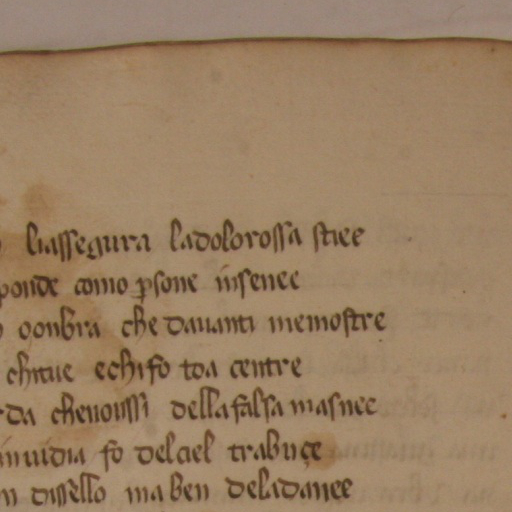 liassegura ladolorossa stiee
ponde como psone insenee
oonbra che davanti memostre
chitue echifo toa centre
da chevoussi dellafalsa masnee
invidia fo delciel trabuçe
dissello ma ben deladanee